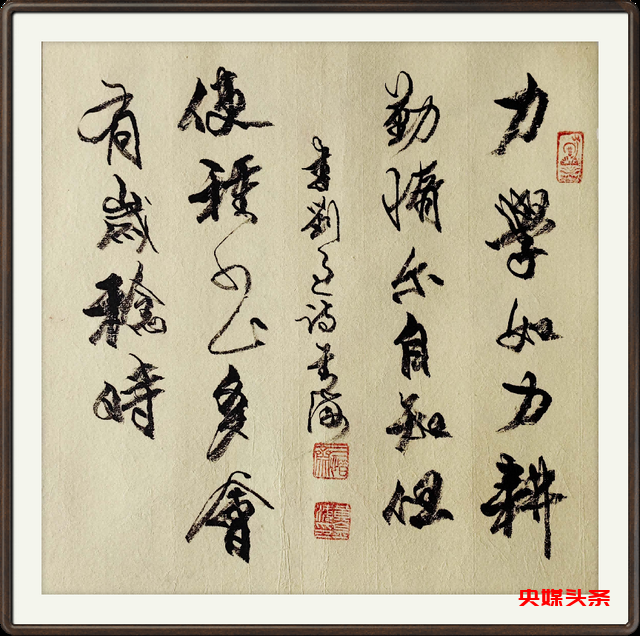 力學如力耕
勤惰尔自知但
使種书多會
有歲稔時
宋劉過詩
央媒头条